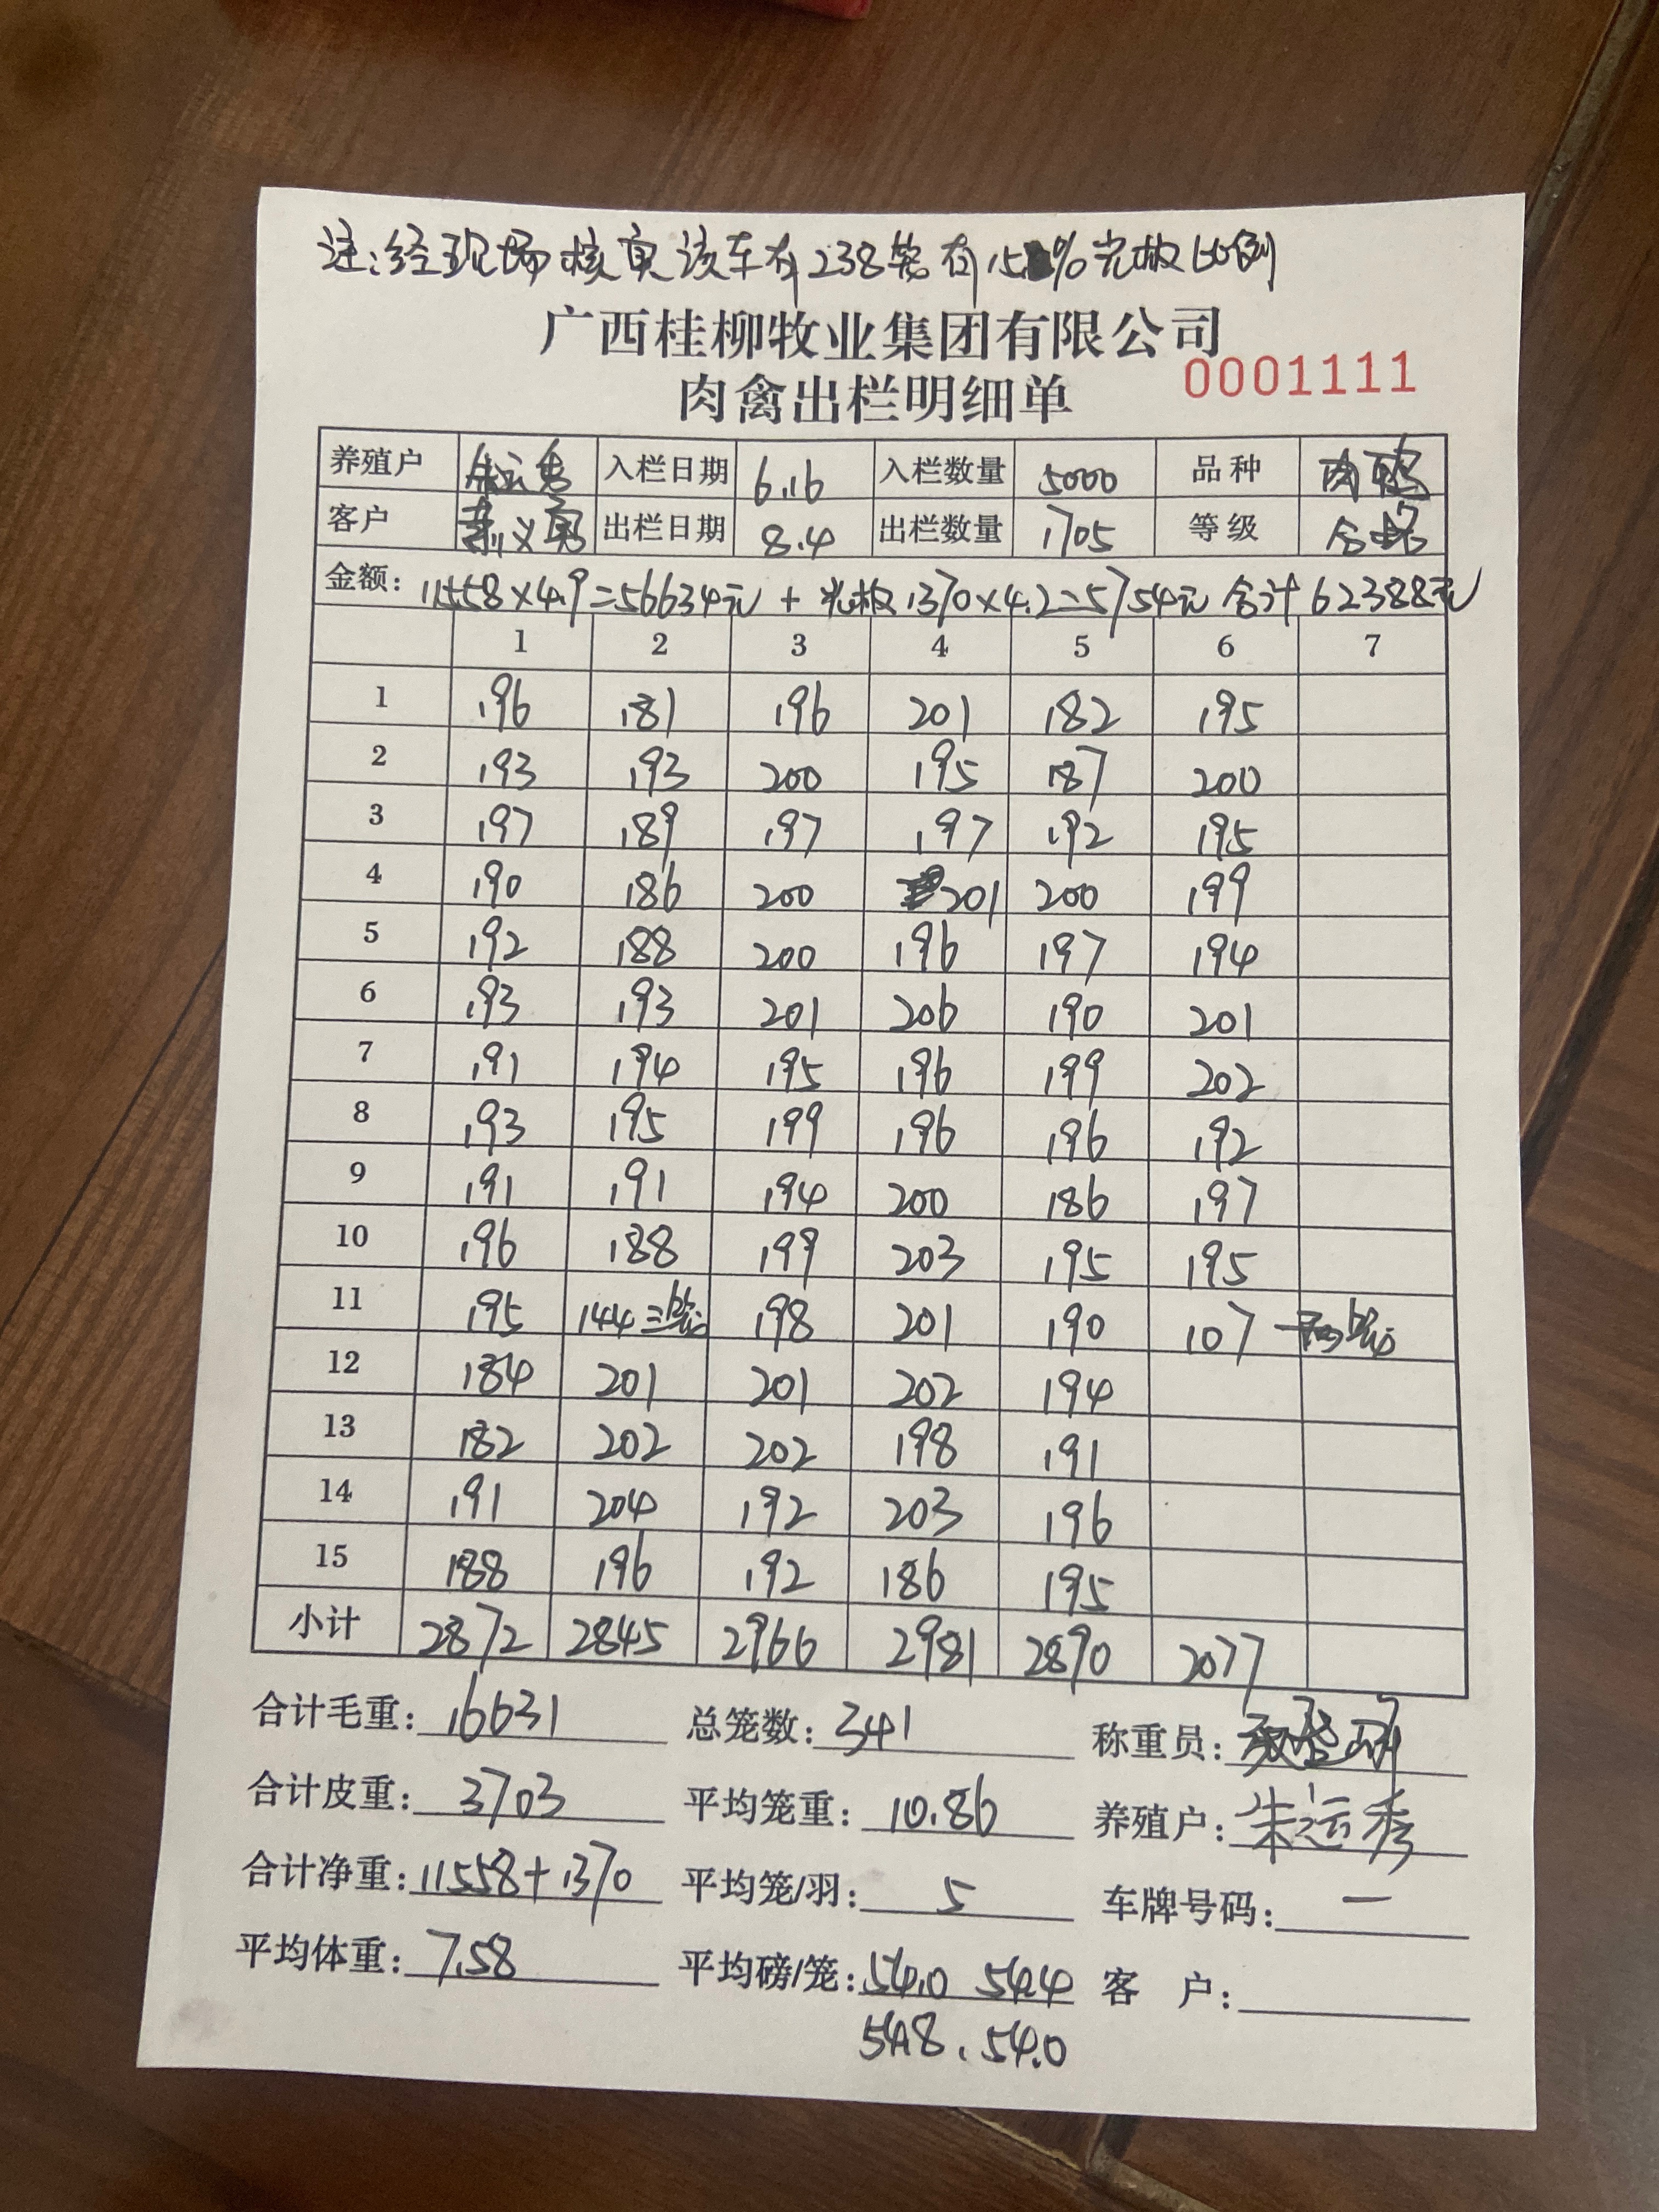 注:经现场核实该车有238笼有15%光板比例
广西桂柳牧业集团有限公司
肉禽出栏明细单
0001111
养殖户 朱运秀 入栏日期 6.16 入栏数量 5000 品种 肉鸭
客户 义勇 出栏日期 8.4 出栏数量 1705 等级 合格
金额: 11558×4.9=56634元+光板1370×4.2=5754元 合计62388元
1 2 3 4 5 6 7
1 196 181 196 201 182 195
2 193 193 200 195 187 200
3 197 189 197 197 192 195
4 190 186 200 201 200 199
5 192 188 200 196 197 194
6 193 193 201 206 190 201
7 191 194 195 196 199 202
8 193 195 199 196 196 192
9 191 191 194 200 186 197
10 196 188 199 203 195 195
11 195 144三笼 198 201 190 107 笼
12 184 201 201 202 194
13 182 202 202 198 191
14 191 204 192 203 196
15 188 196 192 186 195
小计 2872 2845 2966 2981 2890 2077
合计毛重: 16631 总笼数: 341 称重员:
合计皮重: 3703 平均笼重: 10.86 养殖户: 朱运秀
合计净重: 11558+1370 平均笼/羽: 5 车牌号码: 一
平均体重: 7.58 平均磅/笼: 54.0 54.4 客 户:
54.8. 54.0